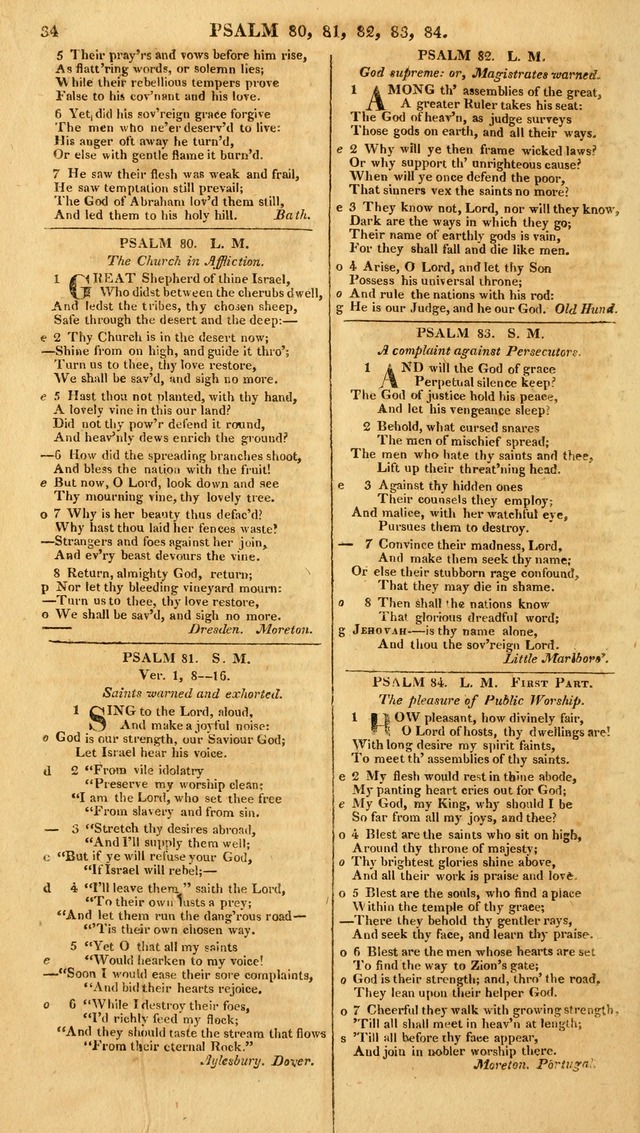 34 PSALM 80, 81, 82, 83, 84.
5 Their pray'rs and vows before him rise,
As flatt'ring words, or solemn lies;
While their rebellious tempers prove
False to his cov'nant and his love.
6 Yet, did his sov'reign grace forgive
The men who ne'er deserv'd to live:
His anger oft away he turn'd,
Or else with gentle flame it burn'd.
7 He saw their flesh was weak and frail,
He saw temptation still prevail;
The God of Abraham lov'd them still,
And led them to his holy hill. Bath.
PSALM 80. L. M.
The Church in Affliction.
1 GREAT Shepherd of thine Israel,
Who didst between the cherubs dwell,
And ledst the tribes, thy chosen sheep,
Safe through the desert and the deep:—
e 2 Thy Church is in the desert now;
—Shine from on high, and guide it thro';
Turn us to thee, thy love restore,
We shall be sav'd, and sigh no more.
e 5 Hast thou not planted, with thy hand,
A lovely vine in this our land?
Did not thy pow'r defend it round,
And heav'nly dews enrich the ground?
—6 How did the spreading branches shoot,
And bless the nation with the fruit!
e But now, O Lord, look down and see
Thy mourning vine, thy lovely tree.
o 7 Why is her beauty thus defac'd?
Why hast thou laid her fences waste?
—Strangers and foes against her join,
And ev'ry beast devours the vine.
8 Return, almighty God, return;
p Nor let thy bleeding vineyard mourn:
—Turn us to thee, thy love restore,
o We shall be sav'd, and sigh no more.
Dresden. Moreton.
PSALM 81. S. M.
Ver. 1, 8--16.
Saints warned and exhorted.
1 SING to the Lord, aloud,
And make a joyful noise:
o God is our strength, our Saviour God;
Let Israel hear his voice.
d 2 "From vile idolatry
"Preserve my worship clean:
"I am the Lord, who set thee free
"From slavery and from sin.
— 3 "Stretch thy desires abroad,
"And I'll supply them well;
e "But if ye will refuse your God,
"If Israel will rebel;—
d 4 "I'll leave them," saith the Lord,
"To their own lusts a prey;
"And let them run the dang'rous road—
"'Tis their own chosen way.
5 "Yet O that all my saints
e "Would hearken to my voice!
—"Soon I would ease their sore complaints,
"And bid their hearts rejoice.
o 6 "While I destroy their foes,
"I'd richly feed my flock;
"And they should taste the stream that flows
"From their eternal Rock."
Aylesbury. Dover.
PSALM 82. L. M.
God supreme: or, Magistrates warned.
1 AMONG th' assemblies of the great,
A greater Ruler takes his seat:
The God of heav'n, as judge surveys
Those gods on earth, and all their ways.
e 2 Why will ye then frame wicked laws?
Or why support th' unrighteous cause?
When will ye once defend the poor,
That sinners vex the saints no more?
e 3 They know not, Lord, nor will they know,
Dark are the ways in which they go;
Their name of earthly gods is vain,
For they shall fall and die like men.
o 4 Arise, O Lord, and let thy Son
Possess his universal throne;
o And rule the nations with his rod:
g He is our Judge, and he our God. Old Hund.
PSALM 83. S. M.
A complaint against Persecutors.
1 AND will the God of grace
Perpetual silence keep?
The God of justice hold his peace,
And let his vengeance sleep?
2 Behold, what cursed snares
The men of mischief spread;
The men who hate thy saints and thee,
Lift up their threat'ning head.
e 3 Against thy hidden ones
Their counsels they employ;
And malice, with her watchful eye,
Pursues them to destroy.
— 7 Convince their madness, Lord,
And make them seek thy name;
Or else their stubborn rage confound,
That they may die in shame.
o 8 Then shall the nations know
That glorious dreadful word;
g JEHOVAH—is thy name alone,
And thou the sov'reign Lord.
Little Marlboro'.
PSALM 84. L. M. FIRST PART.
The pleasure of Public Worship.
1 HOW pleasant, how divinely fair,
O Lord of hosts, thy dwellings are!
With long desire my spirit faints,
To meet th' assemblies of thy saints.
e 2 My flesh would rest in thine abode,
My panting heart cries out for God;
e My God, my King, why should I be
So far from all my joys, and thee?
o 4 Blest are the saints who sit on high,
Around thy throne of majesty;
o Thy brightest glories shine above,
And all their work is praise and love.
o 5 Blest are the souls, who find a place
Within the temple of thy grace;
—There they behold thy gentler rays,
And seek thy face, and learn thy praise.
o 6 Blest are the men whose hearts are set
To find the way to Zion's gate;
o God is their strength; and, thro' the road,
They lean upon their helper God.
o 7 Cheerful they walk with growing strength,
'Till all shall meet in heav'n at length;
s 'Till all before thy face appear,
And join in nobler worship there.
Moreton. Portugal.